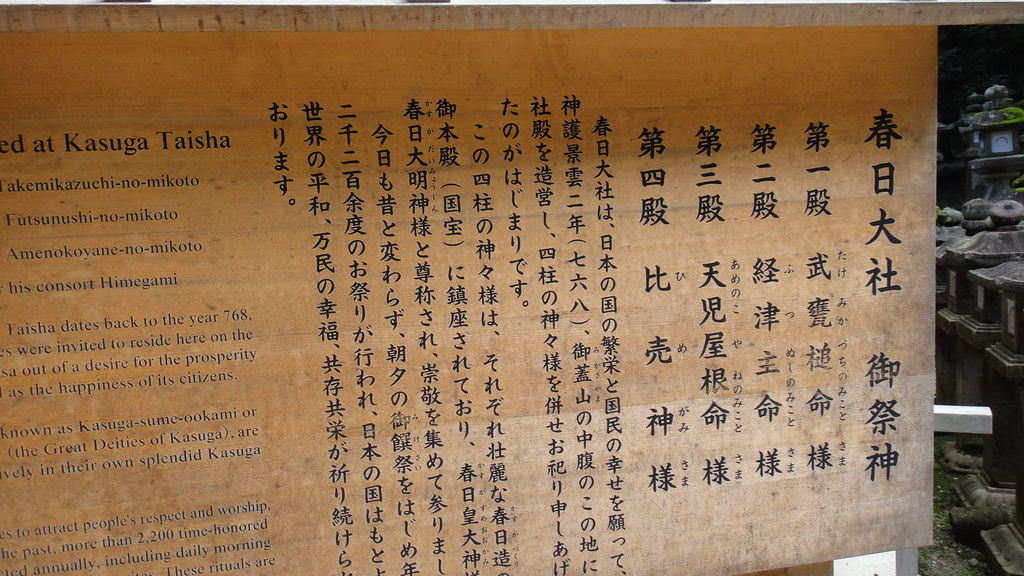 春日大社 御祭神
第一殿 武甕槌命様
たけ みか つちのみこと さま
第二殿 経津主命様
ふ つ ぬしのみこと さま
第三殿 天児屋根命様
あめのこ や ねのみこと さま
第四殿 比売神様
ひ め がみ さま
春日大社は、日本の国の繁栄と国民の幸せを願って、
神護景雲二年(七六八)、御蓋山の中腹のこの地に
みかさやま
社殿を造営し、四柱の神々様を併せお祀り申しあげ
たのがはじまりです。
この四柱の神々様は、それぞれ壮麗な春日造の
かすがづくり
御本殿(国宝)に鎮座されており、春日皇大神様
かすがすめおおかみ
春日大明神様と尊称され、崇敬を集めて参りまし
かすがだいみょうじん
今日も昔と変わらず、朝夕の御饌祭をはじめ年
みけさい
二千二百余度のお祭りが行われ、日本の国はもとよ
世界の平和、万民の幸福、共存共栄が祈り続けら
おります。
ed at Kasuga Taisha
Takemikazuchi-no-mikoto
Futsunushi-no-mikoto
Amenokoyane-no-mikoto
his consort Himegami
Taisha dates back to the year 768.
es were invited to reside here on the
sa out of a desire for the prosperity
l as the happiness of its citizens.
known as Kasuga-sume-ookami or
(the Great Deities of Kasuga), are
ively in their own splendid Kasuga
es to attract people's respect and worship.
he past, more than 2,200 time-honored
cted annually, including daily morning
These rituals are